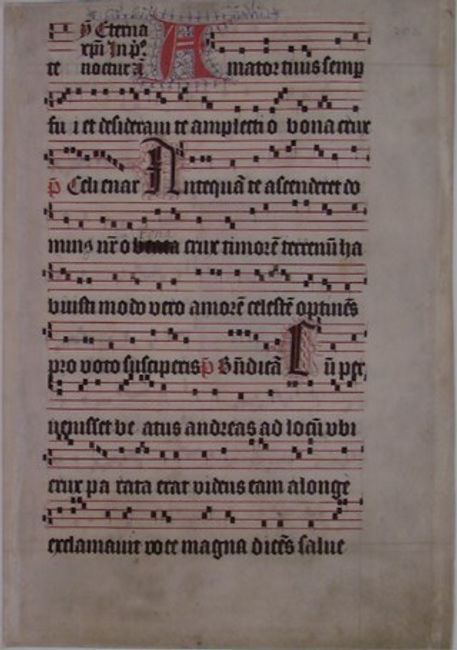 Eterna
xpm̄ In pº
te nocturā Amator tuus semp
fui et desideraui te amplecti o bona crux
p̄ Celi enar Antequā te ascenderet do
minꝰ nr̄ o beata crux timorē terrenū ha
buisti modo vero amorē celestē optinēs
pro voto susciperis p̄ Bn̄dicā Cū per
uenisset be atus andreas ad locū vbi
crux pa rata erat videns eam a longe
exclamauit voce magna dicēs salue